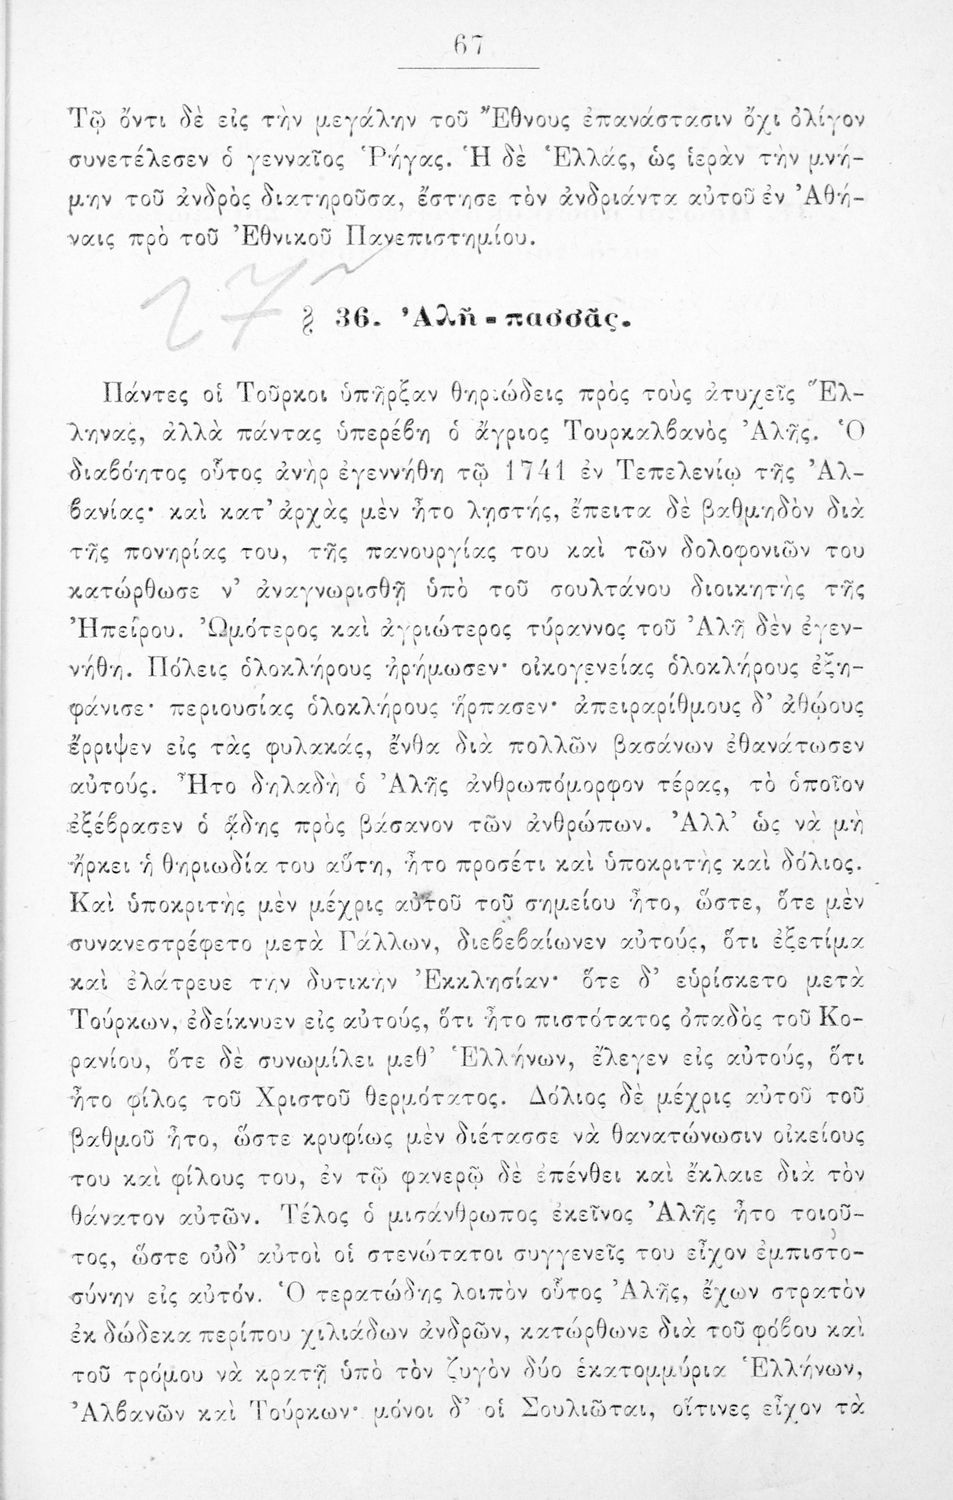 67
Τῷ ὄντι δὲ εἰς τὴν μεγάλην τοῦ Ἔθνους ἐπανάστασιν ὄχι ὀλίγον
συνετέλεσεν ὁ γενναῖος Ῥήγας. Ἡ δὲ Ἑλλάς, ὡς ἱερὰν τὴν μνή-
μην τοῦ ἀνδρὸς διατηροῦσα, ἔστησε τὸν ἀνδριάντα αὐτοῦ ἐν Ἀθή-
ναις πρὸ τοῦ Ἐθνικοῦ Πανεπιστημίου.
27
§ 36. Ἀλῆ-πασσᾶς.
Πάντες οἱ Τοῦρκοι ὑπῆρξαν θηριώδεις πρὸς τοὺς ἀτυχεῖς Ἕλ-
ληνας, ἀλλὰ πάντας ὑπερέβη ὁ ἄγριος Τουρκαλβανὸς Ἀλῆς. Ὁ
διαβόητος οὗτος ἀνὴρ ἐγεννήθη τῷ 1741 ἐν Τεπελενίῳ τῆς Ἀλ-
βανίας· καὶ κατ' ἀρχὰς μὲν ἦτο λῃστής, ἔπειτα δὲ βαθμηδὸν διὰ
τῆς πονηρίας του, τῆς πανουργίας του καὶ τῶν δολοφονιῶν του
κατώρθωσε ν' ἀναγνωρισθῇ ὑπὸ τοῦ σουλτάνου διοικητὴς τῆς
Ἠπείρου. Ὠμότερος καὶ ἀγριώτερος τύραννος τοῦ Ἀλῆ δὲν ἐγεν-
νήθη. Πόλεις ὁλοκλήρους ἠρήμωσεν· οἰκογενείας ὁλοκλήρους ἐξη-
φάνισε· περιουσίας ὁλοκλήρους ἥρπασεν· ἀπειραρίθμους δ' ἀθῴους
ἔρριψεν εἰς τὰς φυλακάς, ἔνθα διὰ πολλῶν βασάνων ἐθανάτωσεν
αὐτούς. Ἦτο δηλαδὴ ὁ Ἀλῆς ἀνθρωπόμορφον τέρας, τὸ ὁποῖον
ἐξέβρασεν ὁ ᾅδης πρὸς βάσανον τῶν ἀνθρώπων. Ἀλλ' ὡς νὰ μὴ
ἤρκει ἡ θηριωδία του αὕτη, ἦτο προσέτι καὶ ὑποκριτὴς καὶ δόλιος.
Καὶ ὑποκριτὴς μὲν μέχρις αὐτοῦ τοῦ σημείου ἦτο, ὥστε, ὅτε μὲν
συνανεστρέφετο μετὰ Γάλλων, διεβεβαίωνεν αὐτούς, ὅτι ἐξετίμα
καὶ ἐλάτρευε τὴν δυτικὴν Ἐκκλησίαν· ὅτε δ' εὑρίσκετο μετὰ
Τούρκων, ἐδείκνυεν εἰς αὐτούς, ὅτι ἦτο πιστότατος ὀπαδὸς τοῦ Κο-
ρανίου, ὅτε δὲ συνωμίλει μεθ' Ἑλλήνων, ἔλεγεν εἰς αὐτούς, ὅτι
ἦτο φίλος τοῦ Χριστοῦ θερμότατος. Δόλιος δὲ μέχρις αὐτοῦ τοῦ
βαθμοῦ ἦτο, ὥστε κρυφίως μὲν διέτασσε νὰ θανατώνωσιν οἰκείους
του καὶ φίλους του, ἐν τῷ φανερῷ δὲ ἐπένθει καὶ ἔκλαιε διὰ τὸν
θάνατον αὐτῶν. Τέλος ὁ μισάνθρωπος ἐκεῖνος Ἀλῆς ἦτο τοιοῦ-
τος, ὥστε οὐδ' αὐτοὶ οἱ στενώτατοι συγγενεῖς του εἶχον ἐμπιστο-
σύνην εἰς αὐτόν. Ὁ τερατώδης λοιπὸν οὗτος Ἀλῆς, ἔχων στρατὸν
ἐκ δώδεκα περίπου χιλιάδων ἀνδρῶν, κατώρθωνε διὰ τοῦ φόβου καὶ
τοῦ τρόμου νὰ κρατῇ ὑπὸ τὸν ζυγὸν δύο ἑκατομμύρια Ἑλλήνων,
Ἀλβανῶν καὶ Τούρκων· μόνοι δ' οἱ Σουλιῶται, οἵτινες εἶχον τὰ